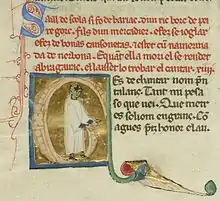 Sail descola si fo de bariac. dun ric borc de pei
regorc. fils dun mercadier. efez se ioglar
efez de bonas cansonetas. et estet cū nainerma
da de nerbona. Equāt ella mori el se rendet
abragairac. el laisset lo trobar el cantar. xiii.
es de chantar nom p̄n
talans. Tant mi pesa
so que uei. Que metr
es soliom engranz. Co
agues p̄tz honor elau.